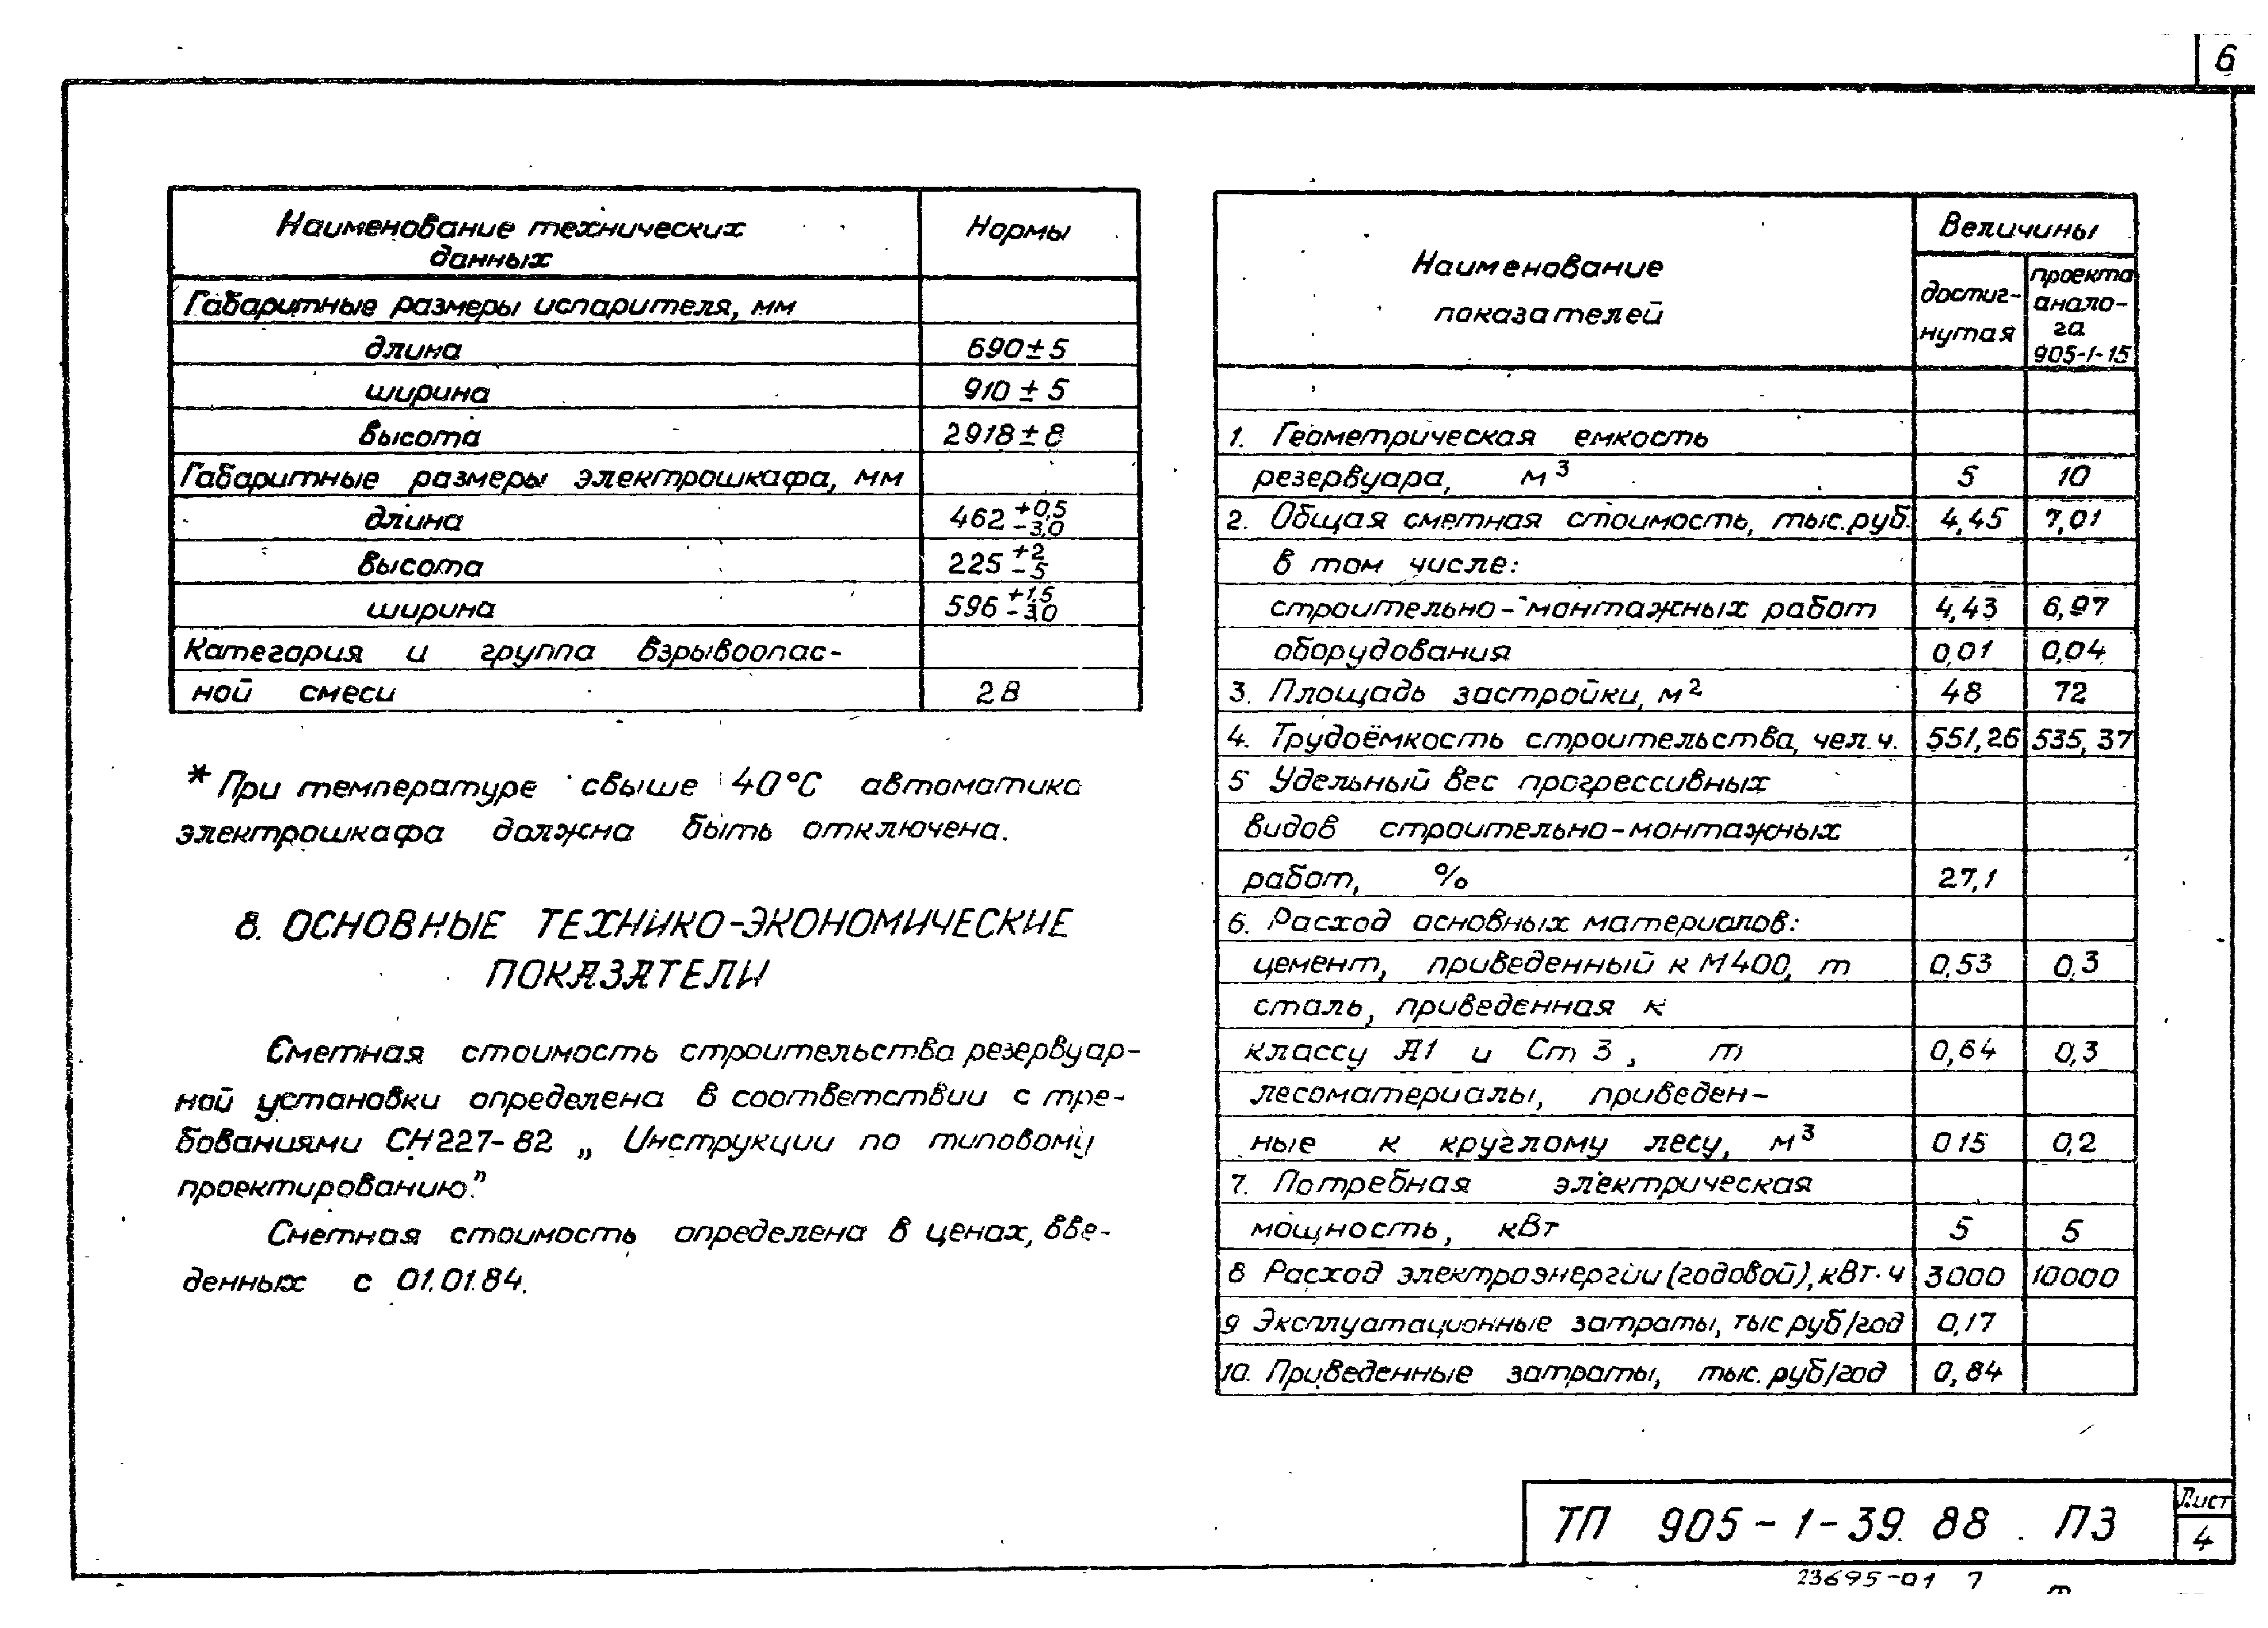 6
Наименование технических данных | Нормы
Габаритные размеры испарителя, мм
длина | 690±5
ширина | 910±5
высота | 2918±8
Габаритные размеры электрошкафа, мм
длина | 462 +0,5 −3,0
высота | 225 +2 −5
ширина | 596 +1,5 −3,0
Категория и группа взрывоопас-
ной смеси | 2В
* При температуре свыше 40°С автоматика
электрошкафа должна быть отключена.
8. ОСНОВНЫЕ ТЕХНИКО-ЭКОНОМИЧЕСКИЕ
ПОКАЗАТЕЛИ
Сметная стоимость строительства резервуар-
ной установки определена в соответствии с тре-
бованиями СН227-82 „ Инструкции по типовому
проектированию."
Сметная стоимость определена в ценах, вве-
денных с 01.01.84.
Наименование показателей | Величины
достиг-нутая | проекта анало-га 905-1-15
1. Геометрическая емкость
резервуара, м³ | 5 | 10
2. Общая сметная стоимость, тыс.руб. | 4,45 | 7,01
в том числе:
строительно-монтажных работ | 4,43 | 6,97
оборудования | 0,01 | 0,04
3. Площадь застройки, м² | 48 | 72
4. Трудоёмкость строительства, чел.ч. | 551,26 | 535,37
5 Удельный вес прогрессивных
видов строительно-монтажных
работ, % | 27,1
6. Расход основных материалов:
цемент, приведенный к М400, т | 0,53 | 0,3
сталь, приведенная к
классу А1 и Ст 3, т | 0,64 | 0,3
лесоматериалы, приведен-
ные к круглому лесу, м³ | 015 | 0,2
7. Потребная электрическая
мощность, кВт | 5 | 5
8 Расход электроэнергии (годовой), кВт·ч | 3000 | 10000
9 Эксплуатационные затраты, тыс руб/год | 0,17
10. Приведенные затраты, тыс. руб/год | 0,84
ТП 905-1-39. 88 . ПЗ
Лист
4
23695-01 7